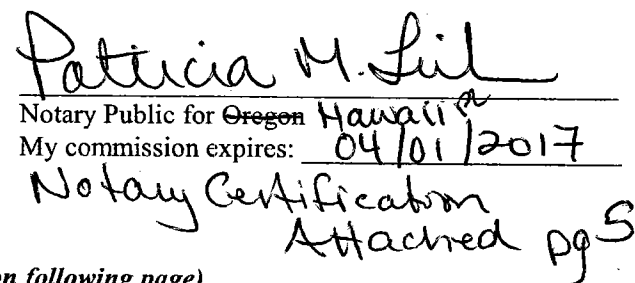 Patricia M.
Notary Public for Oregon Hawaii
My commission expires: 04/01/2017
Notary Certification
Attached pg 5
on following page)